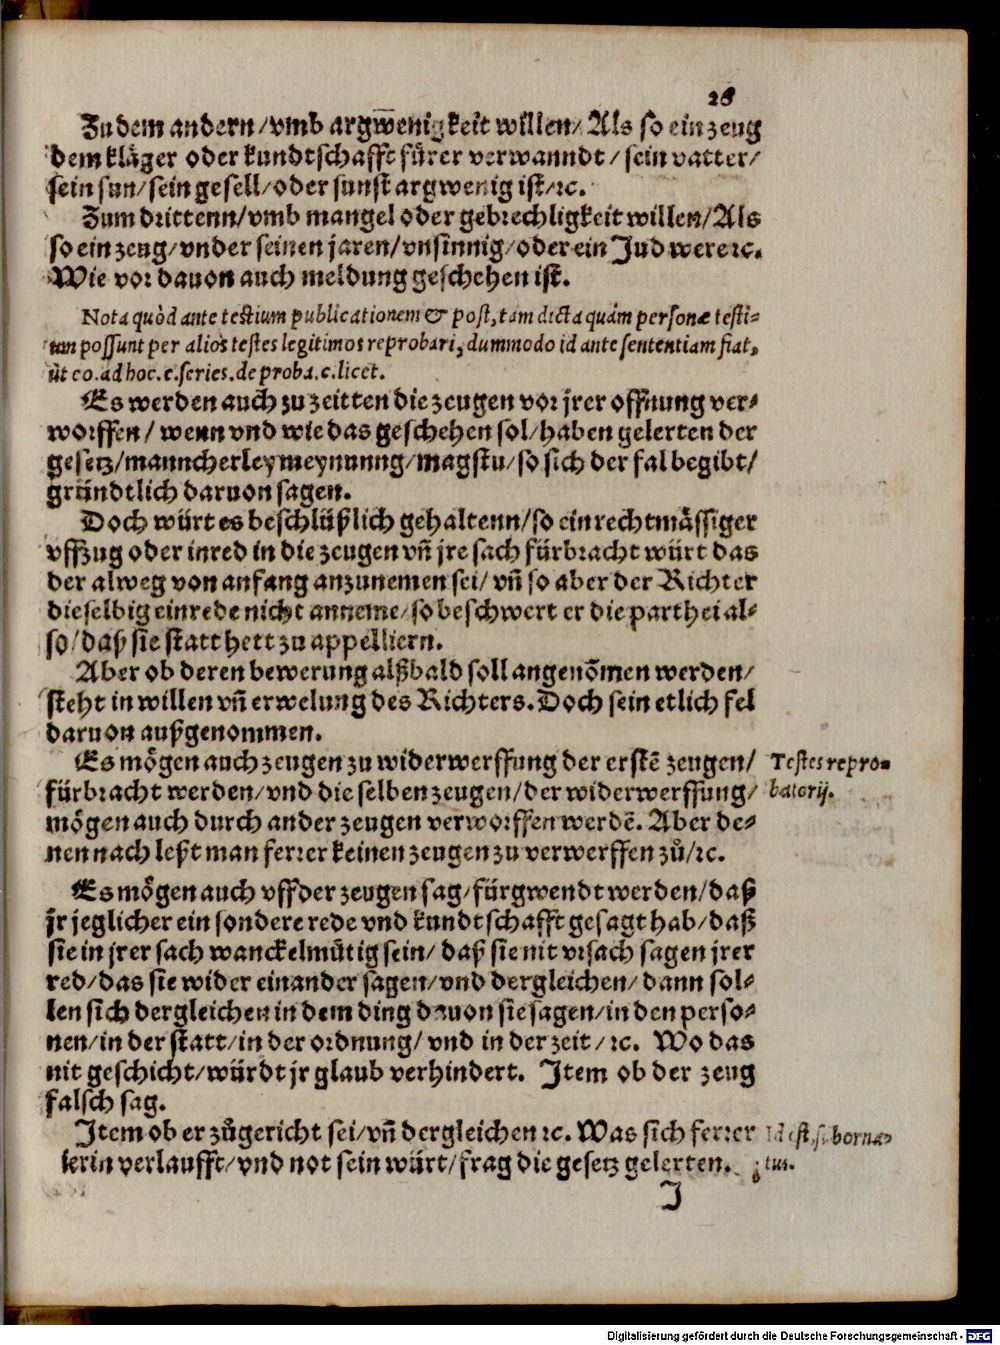 28
Zu dem andern/vmb argwenigkeit willen/Als so ein zeug
dem kläger oder kundtschafft fürer verwanndt/sein vatter/
sein sun/sein gesell/oder sunst argwenig ist/ꝛc.
Zum drittenn/vmb mangel oder gebrechligkeit willen/Als
so ein zeug/vnder seinen jaren/vnsinnig/oder ein Jud were ꝛc.
Wie vor dauon auch meldung geschehen ist.
Nota quòd ante testium publicationem & post, tam dicta quàm personæ testi-
um possunt per alios testes legitimos reprobari, dummodo id ante sententiam fiat,
ut co. ad hoc. c. series. de proba. c. licet.
Es werden auch zu zeitten die zeugen vor jrer offnung ver-
worffen/wenn vnd wie das geschehen sol/haben gelerten der
gesetz/manncherley meynunng/magstu/so sich der fal begibt/
gründtlich daruon sagen.
Doch würt es beschlüßlich gehaltenn/so ein rechtmässiger
vffzug oder inred in die zeugen vñ jre sach fürbracht würt das
der alweg von anfang anzunemen sei/vñ so aber der Richter
dieselbig einrede nicht anneme/so beschwert er die parthei al-
so/daß sie statt hett zu appelliern.
Aber ob deren bewerung alßbald soll angenom̃en werden/
steht in willen vñ erwelung des Richters. Doch sein etlich fel
daruon außgenommen.
Es mögen auch zeugen zu widerwerffung der erstẽ zeugen/
Testes repro-
fürbracht werden/vnd dieselben zeugen/der widerwerffung/
batorij.
mögen auch durch ander zeugen verworffen werdẽ. Aber de-
nen nach leßt man ferrer keinen zeugen zu verwerffen zů/ꝛc.
Es mögen auch vff der zeugen sag/fürgwendt werden/daß
jr jeglicher ein sondere rede vnd kundtschafft gesagt hab/daß
sie in jrer sach wanckelmütig sein/daß sie nit vrsach sagen jrer
red/das sie wider einander sagen/vnd dergleichen/dann sol-
len sich dergleichen in dem ding dauon sie sagen/in den perso-
nen/in der statt/in der ordnung/vnd in der zeit/ꝛc. Wo das
nit geschicht/würdt jr glaub verhindert. Item ob der zeug
falsch sag.
Item ob er zůgericht sei/vñ dergleichen ꝛc. Was sich ferrer
Id est, suborna-
ferin verlaufft/vnd not sein würt/frag die gesetz gelerten.
tus.
J
Digitalisierung gefördert durch die Deutsche Forschungsgemeinschaft - DFG